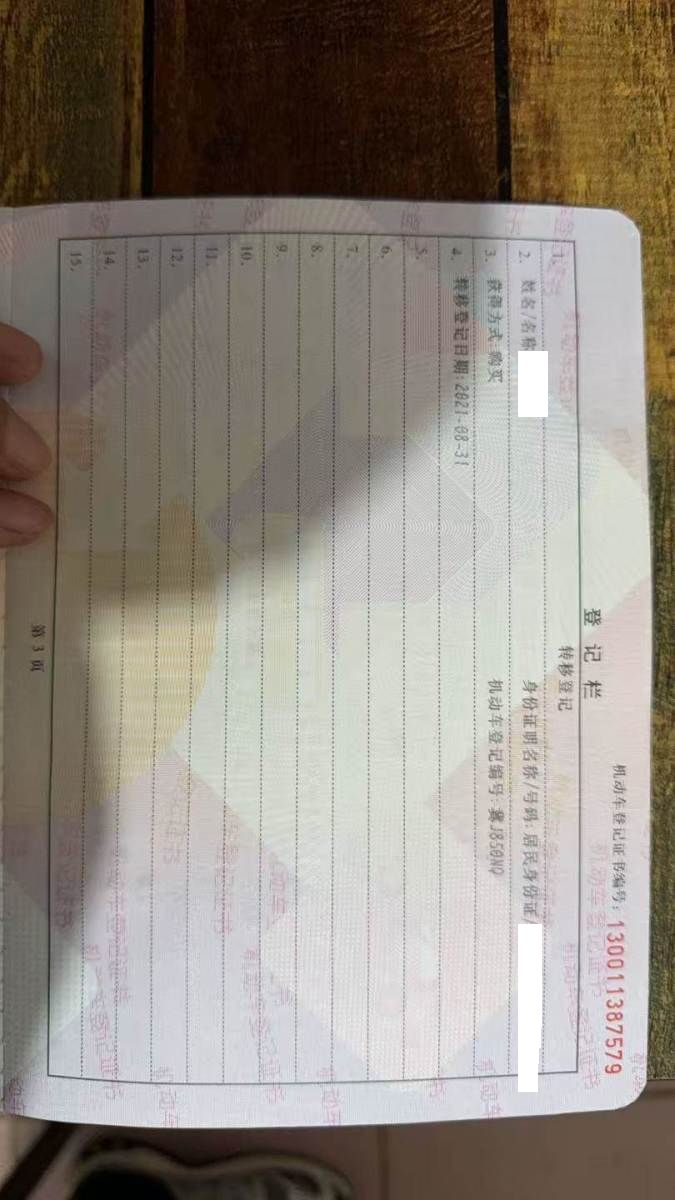 机动车登记证书编号：130011387579
登记栏
转移登记
1.
2. 姓名/名称 身份证明名称/号码：居民身份证/
3. 获得方式：购买 机动车登记编号：冀J850NQ
4. 转移登记日期：2021-08-31
5.
6.
7.
8.
9.
10.
11.
12.
13.
14.
15.
第 3 页